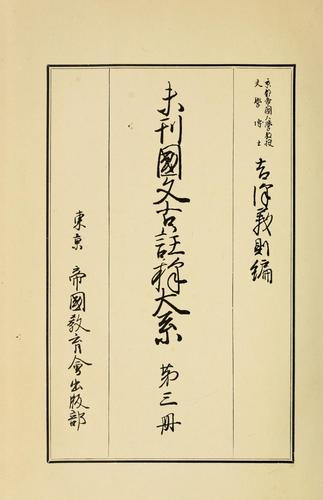 京都帝國大學教授
文學博士
吉澤義則編
未刊國文古註釋大系
第三冊
東京 帝國教育會出版部